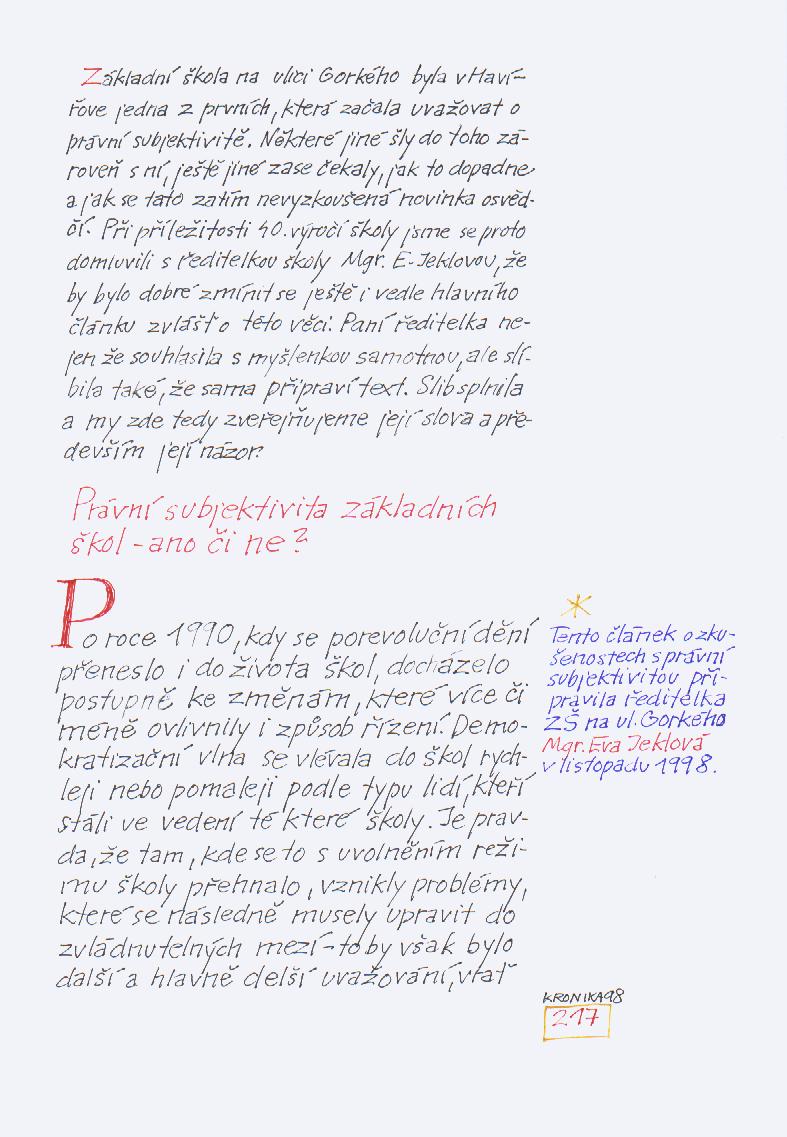 Základní škola na ulici Gorkého byla v Haví-
řove jedna z prvních, která začala uvažovat o
právní subjektivitě. Některé jiné šly do toho zá-
roveň s ní, ještě jiné zase čekaly, jak to dopadne
a jak se tato zatím nevyzkoušená novinka osvěd-
čí. Při příležitosti 40. výročí školy jsme se proto
domluvili s ředitelkou školy Mgr. E. Jeklovou, že
by bylo dobré zmínit se ještě i vedle hlavního
článku zvlášť o této věci. Paní ředitelka ne-
jen že souhlasila s myšlenkou samotnou, ale slí-
bila také, že sama připraví text. Slib splnila
a my zde tedy zveřejňujeme její slova a pře-
devším její názor.
Právní subjektivita základních
škol - ano či ne?
Po roce 1990, kdy se porevoluční dění
přeneslo i do života škol, docházelo
postupně ke změnám, které více či
méně ovlivnily i způsob řízení. Demo-
kratizační vlna se vlévala do škol rych-
leji nebo pomaleji podle typu lidí, kteří
stáli ve vedení té které školy. Je prav-
da, že tam, kde se to s uvolněním reži-
mu školy přehnalo, vznikly problémy,
které se následně musely upravit do
zvládnutelných mezí - to by však bylo
další a hlavně delší uvažování, vrať
Tento článek o zku-
šenostech s právní
subjektivitou při-
pravila ředitelka
ZŠ na ul. Gorkého
Mgr. Eva Jeklová
v listopadu 1998.
KRONIKA 98
217